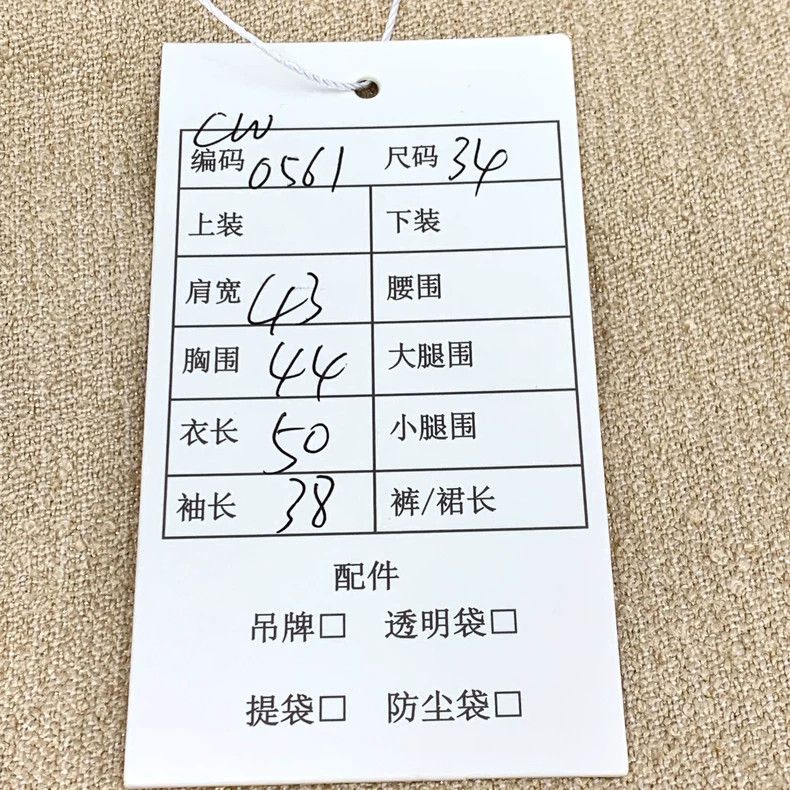 CW
编码 0561 尺码 34
上装 下装
肩宽 43 腰围
胸围 44 大腿围
衣长 50 小腿围
袖长 38 裤/裙长
配件
吊牌□ 透明袋□
提袋□ 防尘袋□